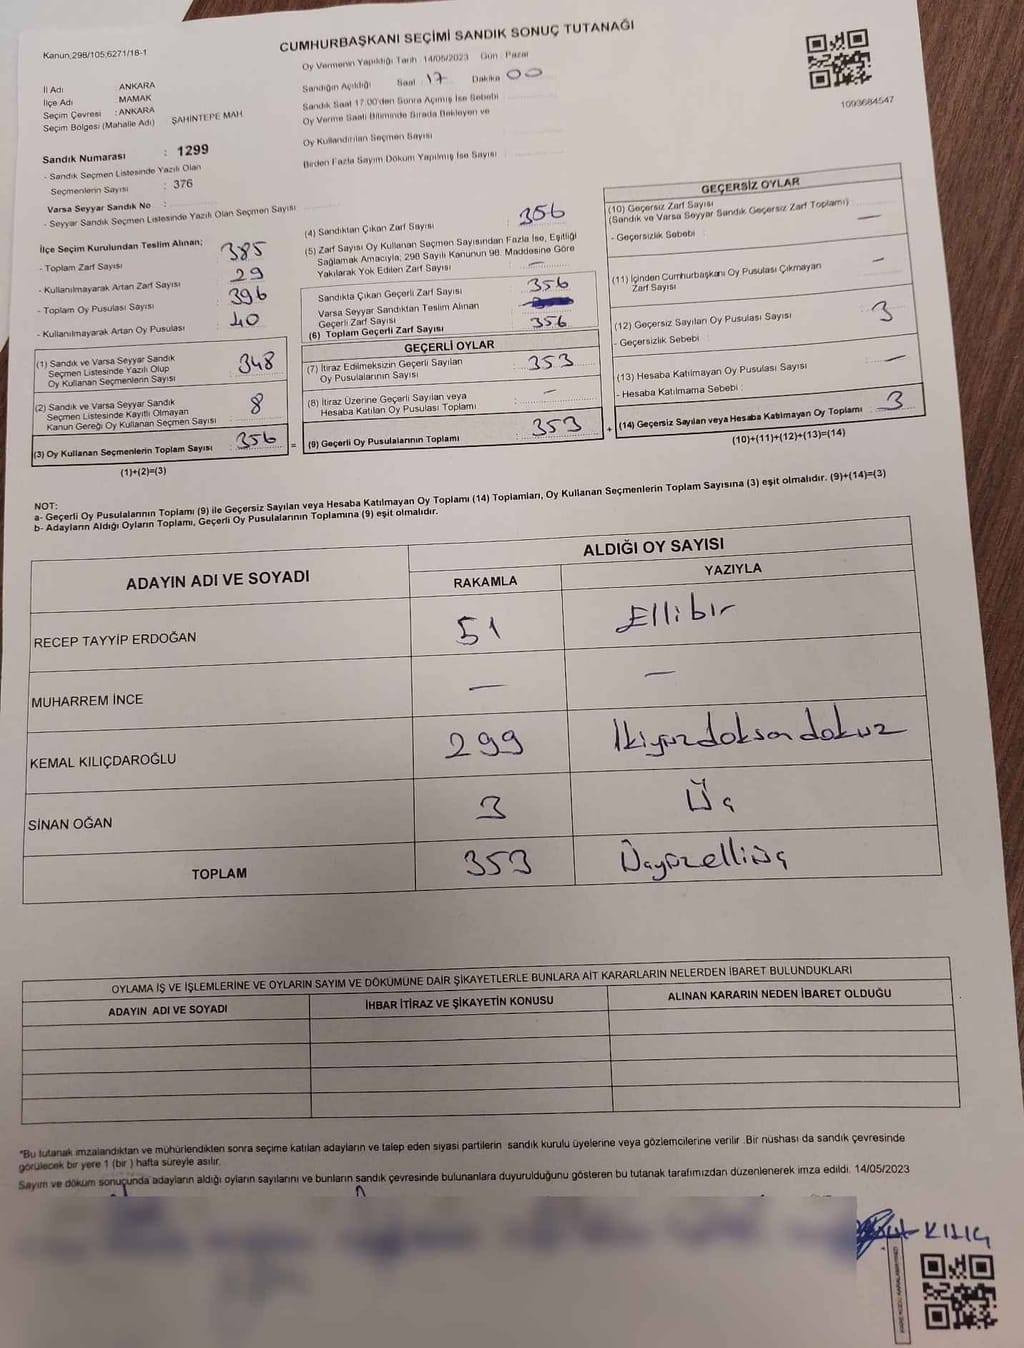 Kanun,298/105,6271/18-1
CUMHURBAŞKANI SEÇİMİ SANDIK SONUÇ TUTANAĞI
Oy Vermenin Yapıldığı Tarih : 14/05/2023 Gün : Pazar
Sandığın Açıldığı Saat 17 Dakika 00
Sandık Saat 17:00'den Sonra Açımış İse Sebebi
Oy Verme Saati Bitiminde Sırada Bekleyen ve
Oy Kullandırılan Seçmen Sayısı
Birden Fazla Sayım Döküm Yapılmış İse Sayısı
1093684547
İl Adı : ANKARA
İlçe Adı : MAMAK
Seçim Çevresi : ANKARA
Seçim Bölgesi (Mahalle Adı) ŞAHİNTEPE MAH.
Sandık Numarası : 1299
- Sandık Seçmen Listesinde Yazılı Olan
Seçmenlerin Sayısı : 376
Varsa Seyyar Sandık No :
- Seyyar Sandık Seçmen Listesinde Yazılı Olan Seçmen Sayısı
İlçe Seçim Kurulundan Teslim Alınan;
- Toplam Zarf Sayısı : 385
- Kullanılmayarak Artan Zarf Sayısı : 29
- Toplam Oy Pusulası Sayısı : 396
- Kullanılmayarak Artan Oy Pusulası : 40
(1) Sandık ve Varsa Seyyar Sandık
Seçmen Listesinde Yazılı Olup
Oy Kullanan Seçmenlerin Sayısı : 348
(2) Sandık ve Varsa Seyyar Sandık
Seçmen Listesinde Kayıtlı Olmayan
Kanun Gereği Oy Kullanan Seçmen Sayısı : 8
(3) Oy Kullanan Seçmenlerin Toplam Sayısı : 356 =
(1)+(2)=(3)
(4) Sandıktan Çıkan Zarf Sayısı : 356
(5) Zarf Sayısı Oy Kullanan Seçmen Sayısından Fazla İse, Eşitliği
Sağlamak Amacıyla, 298 Sayılı Kanunun 98. Maddesine Göre
Yakılarak Yok Edilen Zarf Sayısı : —
Sandıkta Çıkan Geçerli Zarf Sayısı : 356
Varsa Seyyar Sandıktan Teslim Alınan
Geçerli Zarf Sayısı
(6) Toplam Geçerli Zarf Sayısı : 356
GEÇERLİ OYLAR
(7) İtiraz Edilmeksizin Geçerli Sayılan
Oy Pusulalarının Sayısı : 353
(8) İtiraz Üzerine Geçerli Sayılan veya
Hesaba Katılan Oy Pusulası Toplamı : —
(9) Geçerli Oy Pusulalarının Toplamı : 353 +
GEÇERSİZ OYLAR
(10) Geçersiz Zarf Sayısı
(Sandık ve Varsa Seyyar Sandık Geçersiz Zarf Toplamı) : —
- Geçersizlik Sebebi :
(11) İçinden Cumhurbaşkanı Oy Pusulası Çıkmayan
Zarf Sayısı : —
(12) Geçersiz Sayılan Oy Pusulası Sayısı : 3
- Geçersizlik Sebebi :
(13) Hesaba Katılmayan Oy Pusulası Sayısı : —
- Hesaba Katılmama Sebebi :
(14) Geçersiz Sayılan veya Hesaba Katılmayan Oy Toplamı : 3
(10)+(11)+(12)+(13)=(14)
NOT:
a- Geçerli Oy Pusulalarının Toplamı (9) ile Geçersiz Sayılan veya Hesaba Katılmayan Oy Toplamı (14) Toplamları, Oy Kullanan Seçmenlerin Toplam Sayısına (3) eşit olmalıdır. (9)+(14)=(3)
b- Adayların Aldığı Oyların Toplamı, Geçerli Oy Pusulalarının Toplamına (9) eşit olmalıdır.
ADAYIN ADI VE SOYADI ALDIĞI OY SAYISI
RAKAMLA YAZIYLA
RECEP TAYYİP ERDOĞAN 51 Ellibir
MUHARREM İNCE — —
KEMAL KILIÇDAROĞLU 299 İkiyüzdoksandokuz
SİNAN OĞAN 3 Üç
TOPLAM 353 Üçyüzelliüç
OYLAMA İŞ VE İŞLEMLERİNE VE OYLARIN SAYIM VE DÖKÜMÜNE DAİR ŞİKAYETLERLE BUNLARA AİT KARARLARIN NELERDEN İBARET BULUNDUKLARI
ADAYIN ADI VE SOYADI İHBAR İTİRAZ VE ŞİKAYETİN KONUSU ALINAN KARARIN NEDEN İBARET OLDUĞU
"Bu tutanak imzalandıktan ve mühürlendikten sonra seçime katılan adayların ve talep eden siyasi partilerin sandık kurulu üyelerine veya gözlemcilerine verilir .Bir nüshası da sandık çevresinde
görülecek bir yere 1 (bir ) hafta süreyle asılır.
Sayım ve döküm sonuçunda adayların aldığı oyların sayılarını ve bunların sandık çevresinde bulunanlara duyurulduğunu gösteren bu tutanak tarafımızdan düzenlenerek imza edildi. 14/05/2023
KILIÇ